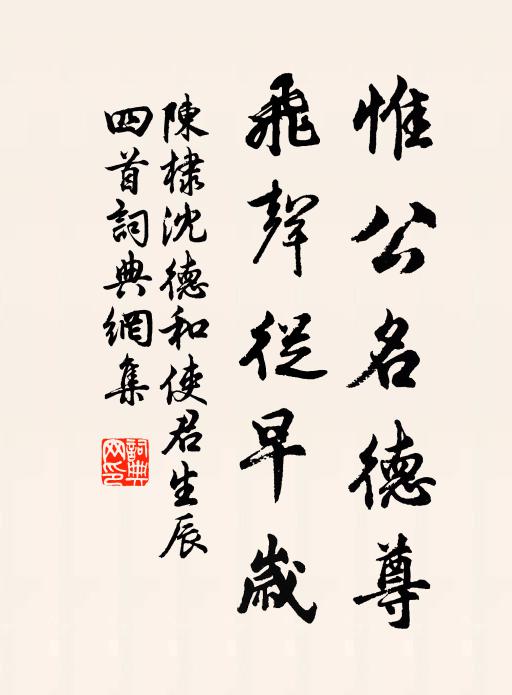 惟公名德尊
飛聲從早歲
陳棣沈德和使君生辰
四首詞典網集
詞典
网印